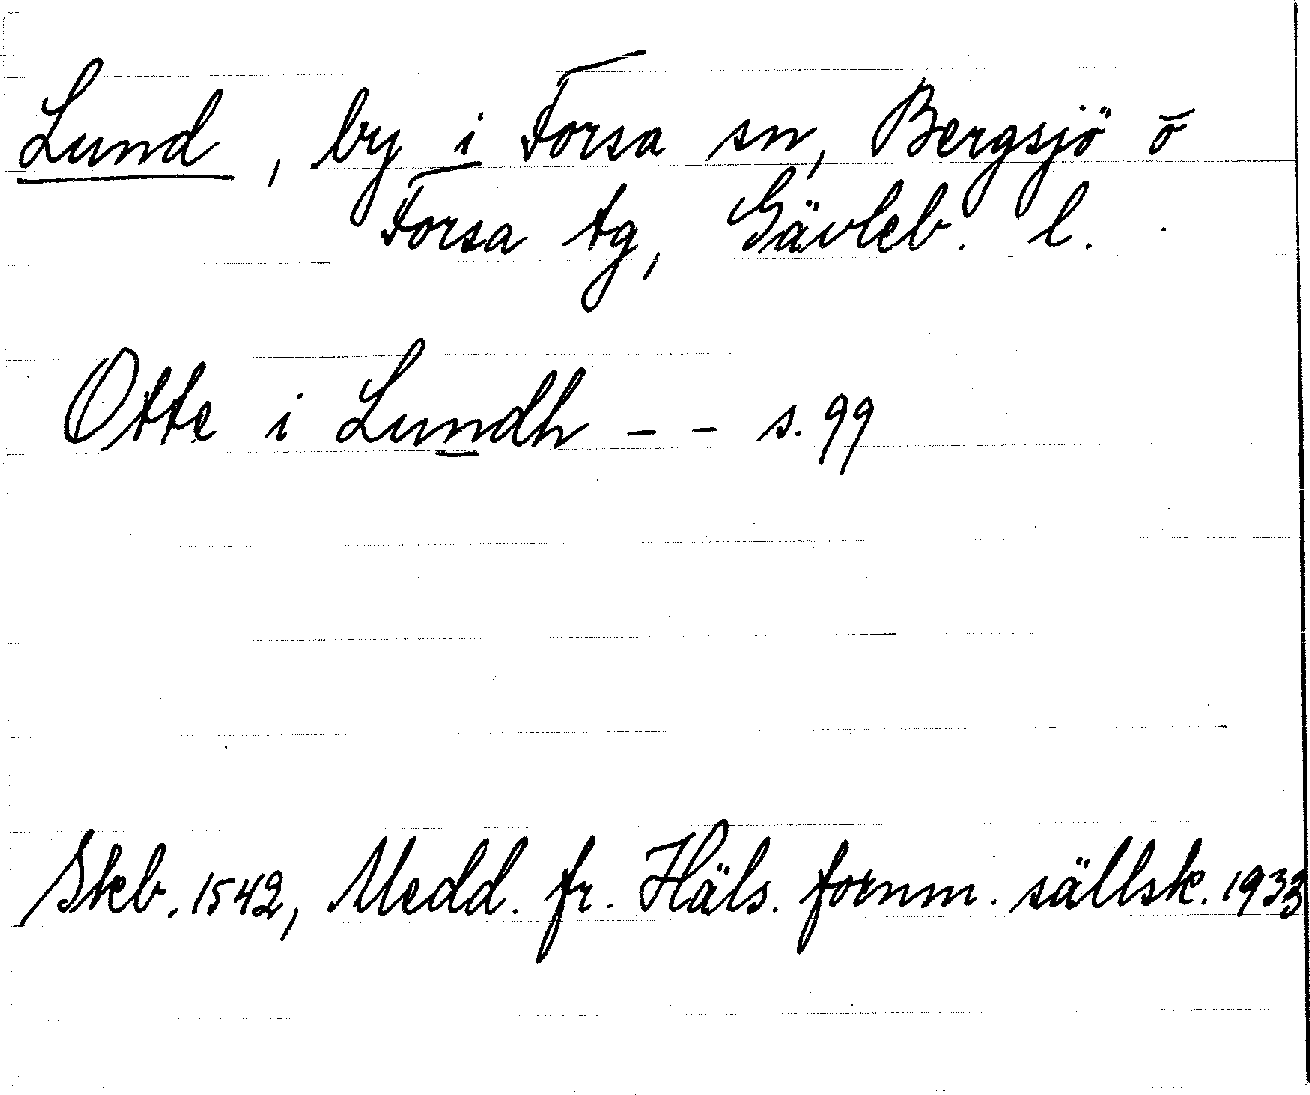 Lund, by i Forsa sn, Bergsjö o
Forsa tg, Gävleb. l.
Otte i Lundh - - s. 99
Skb. 1542, Medd. fr. Häls. fornm. sällsk. 1933